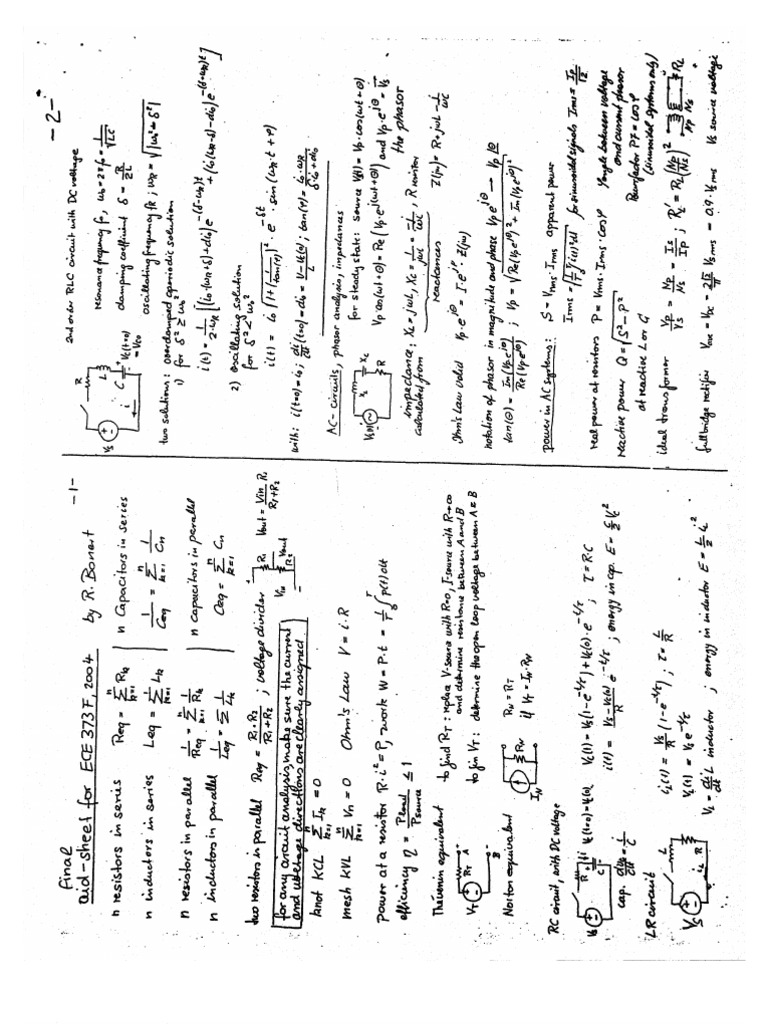 Final
aid-sheet for ECE 373F, 2004 by R. Bonert -1-
n resistors in series Req = Σ_{k=1}^{n} Rk | n Capacitors in series
n inductors in series Leq = Σ_{k=1}^{n} Lk | 1/Ceq = Σ_{k=1}^{n} 1/Cn
n resistors in parallel 1/Req = Σ_{k=1}^{n} 1/Rk | n capacitors in parallel
n inductors in parallel 1/Leq = Σ_{k=1}^{n} 1/Lk | Ceq = Σ_{k=1}^{n} Cn
two resistors in parallel Req = R1·R2/(R1+R2) ; voltage divider Vin R1 R2 Vout Vout = Vin R2/(R1+R2)
for any circuit analysis make sure the current
and voltage directions are clearly assigned
knot KCL Σ_{k=1}^{n} Ik = 0
mesh KVL Σ_{k=1}^{n} Vn = 0 Ohm's Law V = i·R
power at a resistor R·i² = P, work W = P·t = 1/T ∫_0^T p(t) dt
efficiency η = Pload/Psource ≤ 1
Thévenin equivalent to find RT: replace V-source with R=0, I source with R→∞
and determine resistance between A and B
VT RT A B to fin VT: determine the open loop voltage between A & B
Norton equivalent IN RN RN = RT
if VT = IN·RN
RC circuit, with DC voltage
Vs R i C Vc(t=0)=Vc(0) Vc(t) = Vs(1-e^{-t/τ}) + Vc(0)·e^{-t/τ} ; τ = R·C
cap. dVc/dt = i/C i(t) = (Vs-Vc(0))/R e^{-t/τ} ; energy in cap. E = C/2 Vc²
LR circuit iL(t) = Vs/R (1-e^{-t/τ}) ; τ = L/R
Vs L iL R VL(t) = Vs e^{-t/τ}
VL = di/dt L inductor ; energy in inductor E = L/2 iL²
-2-
2nd order RLC circuit with DC voltage
Vs R L i C Vc(t=0)=Vco
resonance frequency fo, ω0 = 2πfo = 1/√LC
damping coefficient δ = R/2L
oscillating frequency fR; ωR = √|ω0²-δ²|
two solutions: overdamped aperiodic solution
1) for δ² ≥ ω0²
i(t) = 1/(2·ωR) [(io(ωR+δ)+dio)e^{-(δ-ωR)t} + (io(ωR-δ)-dio)e^{-(δ+ωR)t}]
2) oscillating solution
for δ² < ω0²
i(t) = io √(1+(1/tan(φ))²) · e^{-δt} · sin(ωR·t+φ)
with: i(t=0)=io; di/dt(t=0)=dio = (V-Vc(0))/L; tan(φ) = io·ωR/(δ·io+dio)
AC-circuits, phasor analysis, impedances
V(t) XL XC R for steady state: source V(t) = Vp·cos(ωt+θ)
Vp cos(ωt+θ) = Re(Vp·e^{j(ωt+θ)}) and Vp·e^{jθ} = Vs
the phasor
impedance: XL = jωL, XC = 1/jωC = -j/ωC, R resistor
calculated from reactances Z(jω) = R+jωL - j/ωC
Ohm's Law valid Vp·e^{jθ} = I·e^{jφ}·Z(jω)
notation of phasor in magnitude and phase Vp e^{jθ} — Vp∠θ
tan(θ) = Im(Vp e^{jθ})/Re(Vp e^{jθ}) ; Vp = √(Re(Vp e^{jθ})² + Im(Vp e^{jθ})²)
power in AC systems: S = Vrms·Irms apparent power
Irms = √(1/T ∫ i(t)² dt) for sinusoidal signals Irms = Ip/√2
real power at resistors P = Vrms·Irms·cosφ φ angle between voltage
and current phasor
Reactive power Q = √(S²-P²) Powerfactor PF = cosφ
at reactive L or C (sinusoidal systems only)
ideal transformer Vp/Vs = Np/Ns = Is/Ip ; RL' = RL(Np/Ns)² Np Ns RL
full bridge rectifier VDC = 2√2/π Vrms = 0.9·Vrms Vs source voltage